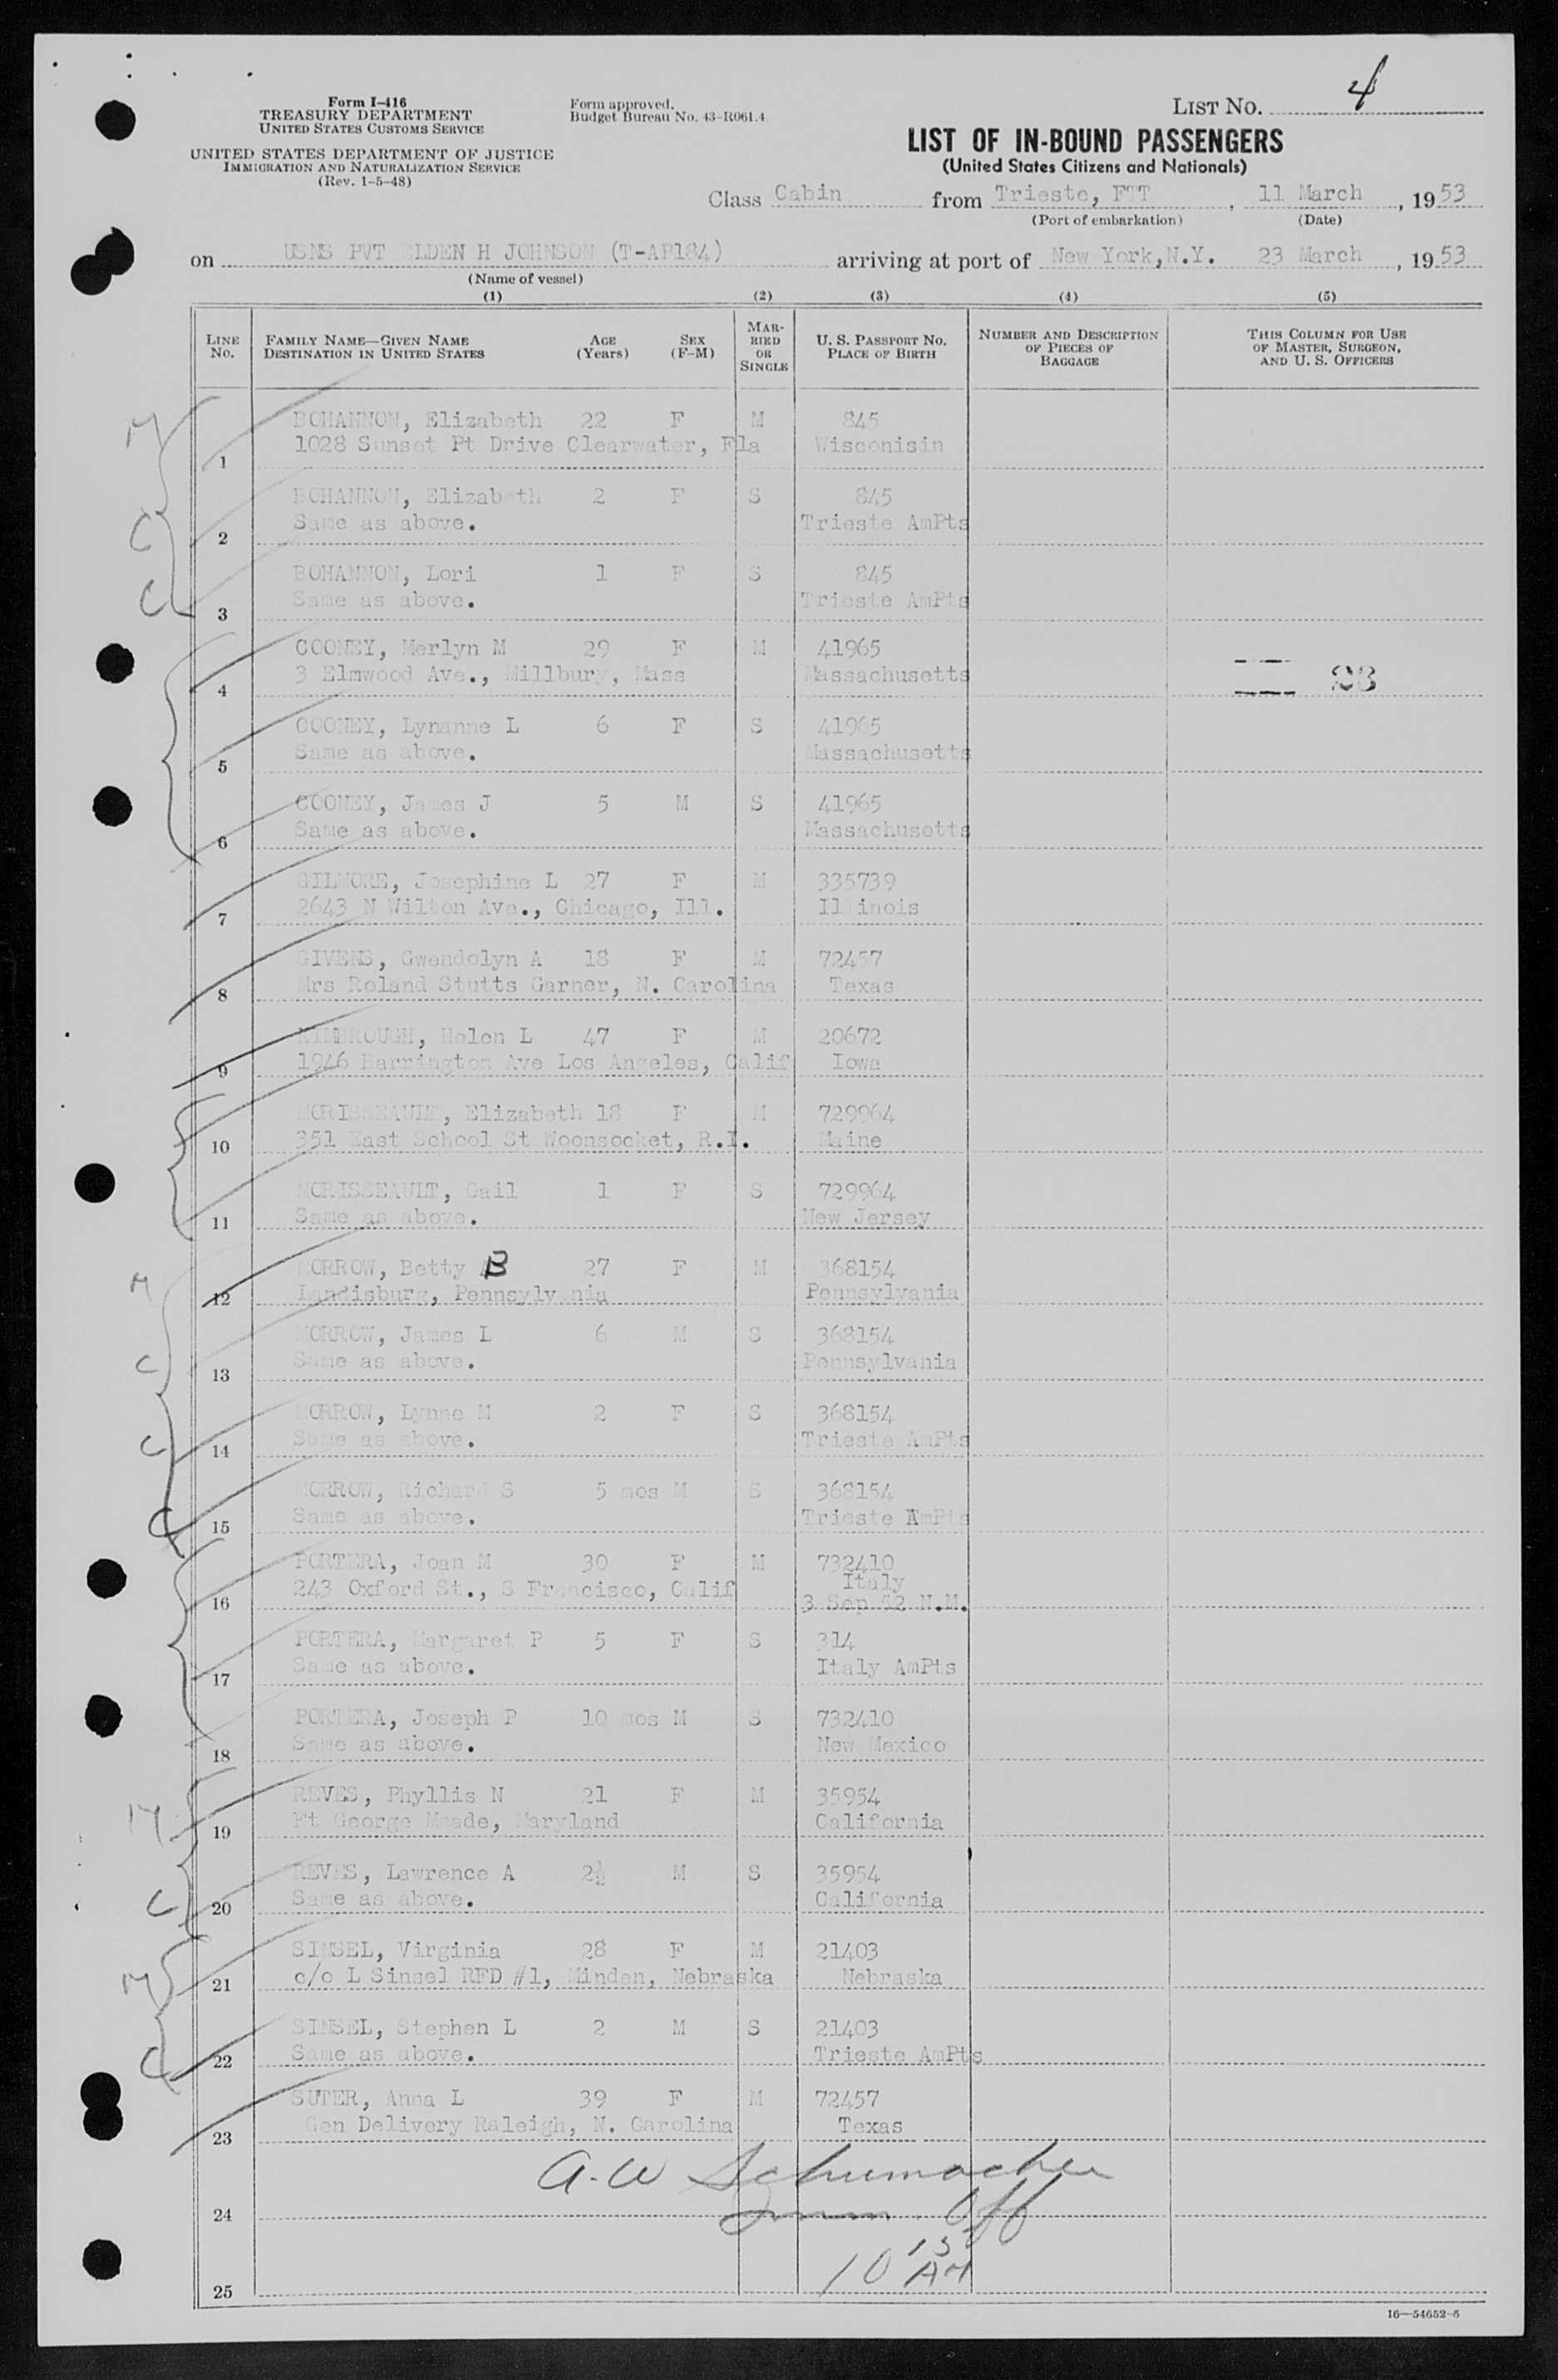 4
Form I-416
TREASURY DEPARTMENT
UNITED STATES CUSTOMS SERVICE
UNITED STATES DEPARTMENT OF JUSTICE
IMMIGRATION AND NATURALIZATION SERVICE
(Rev. 1-5-48)
Form approved.
Budget Bureau No. 43-R061.4.
LIST NO.
LIST OF IN-BOUND PASSENGERS
(United States Citizens and Nationals)
Class Cabin from Trieste, FTT, 11 March, 1953
(Port of embarkation) (Date)
on USNS PVT ELDEN H JOHNSON (T-AP184) arriving at port of New York, N.Y. 23 March, 1953
(Name of vessel)
(1) (2) (3) (4) (5)
LINE NO. FAMILY NAME—GIVEN NAME DESTINATION IN UNITED STATES AGE (Years) SEX (F-M) MARRIED OR SINGLE U. S. PASSPORT NO. PLACE OF BIRTH NUMBER AND DESCRIPTION OF PIECES OF BAGGAGE THIS COLUMN FOR USE OF MASTER, SURGEON, AND U. S. OFFICERS
M BOHANNON, Elizabeth 22 F M 845
1 1028 Sunset Pt Drive Clearwater, Fla Wisconisin
BOHANNON, Elizabeth 2 F S 845
C 2 Same as above. Trieste AmPts
BOHANNON, Lori 1 F S 845
C 3 Same as above. Trieste AmPts
COONEY, Merlyn M 29 F M 41965
4 3 Elmwood Ave., Millbury, Mass Massachusetts 23
COONEY, Lynanne L 6 F S 41965
5 Same as above. Massachusetts
COONEY, James J 5 M S 41965
6 Same as above. Massachusetts
GILMORE, Josephine L 27 F M 335739
7 2643 N Wilton Ave., Chicago, Ill. Illinois
GIVENS, Gwendolyn A 18 F M 72457
8 Mrs Roland Stutts Garner, N. Carolina Texas
KIMBROUGH, Helen L 47 F M 20672
9 1946 Barrington Ave Los Angeles, Calif Iowa
MORISSEAULT, Elizabeth 18 F M 729964
10 351 East School St Woonsocket, R.I. Maine
MORISSEAULT, Gail 1 F S 729964
11 Same as above. New Jersey
M MORROW, Betty B 27 F M 368154
12 Landisburg, Pennsylvania Pennsylvania
MORROW, James L 6 M S 368154
C 13 Same as above. Pennsylvania
MORROW, Lynne M 2 F S 368154
C 14 Same as above. Trieste AmPts
MORROW, Richard S 5 mos M S 368154
C 15 Same as above. Trieste AmPts
PORTERA, Joan M 30 F M 732410
16 243 Oxford St., S Francisco, Calif Italy
3 Sep 52 N.M.
PORTERA, Margaret P 5 F S 314
17 Same as above. Italy AmPts
PORTERA, Joseph P 10 mos M S 732410
18 Same as above. New Mexico
REVES, Phyllis N 21 F M 35954
M 19 Ft George Meade, Maryland California
REVES, Lawrence A 2½ M S 35954
C 20 Same as above. California
SINSEL, Virginia 28 F M 21403
M 21 c/o L Sinsel RFD #1, Minden, Nebraska Nebraska
SINSEL, Stephen L 2 M S 21403
C 22 Same as above. Trieste AmPts
SUTER, Anna L 39 F M 72457
23 Gen Delivery Raleigh, N. Carolina Texas
A.W Schumacher
24 Imm. Off
10 15 AM
25
16—54652-5